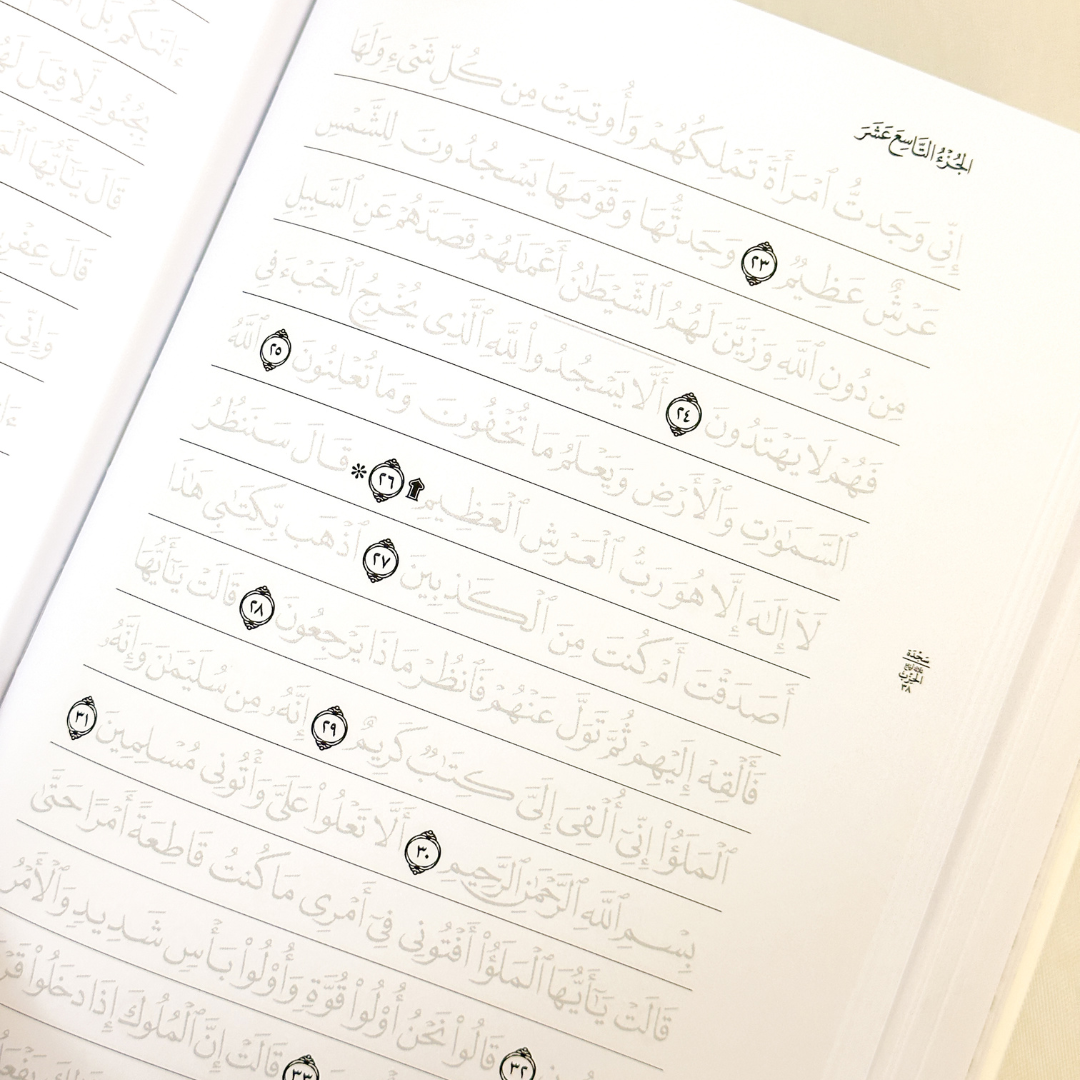 الجُزْءُ التَّاسِعَ عَشَرَ
إِنِّى وَجَدتُّ ٱمْرَأَةً تَمْلِكُهُمْ وَأُوتِيَتْ مِن كُلِّ شَىْءٍ وَلَهَا
عَرْشٌ عَظِيمٌ ٢٣ وَجَدتُّهَا وَقَوْمَهَا يَسْجُدُونَ لِلشَّمْسِ
مِن دُونِ ٱللَّهِ وَزَيَّنَ لَهُمُ ٱلشَّيْطَٰنُ أَعْمَٰلَهُمْ فَصَدَّهُمْ عَنِ ٱلسَّبِيلِ
فَهُمْ لَا يَهْتَدُونَ ٢٤ أَلَّا يَسْجُدُوا۟ لِلَّهِ ٱلَّذِى يُخْرِجُ ٱلْخَبْءَ فِى
ٱلسَّمَٰوَٰتِ وَٱلْأَرْضِ وَيَعْلَمُ مَا تُخْفُونَ وَمَا تُعْلِنُونَ ٢٥ ٱللَّهُ
لَآ إِلَٰهَ إِلَّا هُوَ رَبُّ ٱلْعَرْشِ ٱلْعَظِيمِ ٢٦ * قَالَ سَنَنظُرُ
أَصَدَقْتَ أَمْ كُنتَ مِنَ ٱلْكَٰذِبِينَ ٢٧ ٱذْهَب بِّكِتَٰبِى هَٰذَا
فَأَلْقِهْ إِلَيْهِمْ ثُمَّ تَوَلَّ عَنْهُمْ فَٱنظُرْ مَاذَا يَرْجِعُونَ ٢٨ قَالَتْ يَٰٓأَيُّهَا
ٱلْمَلَؤُا۟ إِنِّىٓ أُلْقِىَ إِلَىَّ كِتَٰبٌ كَرِيمٌ ٢٩ إِنَّهُۥ مِن سُلَيْمَٰنَ وَإِنَّهُۥ
بِسْمِ ٱللَّهِ ٱلرَّحْمَٰنِ ٱلرَّحِيمِ ٣٠ أَلَّا تَعْلُوا۟ عَلَىَّ وَأْتُونِى مُسْلِمِينَ ٣١
قَالَتْ يَٰٓأَيُّهَا ٱلْمَلَؤُا۟ أَفْتُونِى فِىٓ أَمْرِى مَا كُنتُ قَاطِعَةً أَمْرًا حَتَّىٰ
٣٢ قَالُوا۟ نَحْنُ أُو۟لُوا۟ قُوَّةٍ وَأُو۟لُوا۟ بَأْسٍ شَدِيدٍ وَٱلْأَمْرُ
٣٣ قَالَتْ إِنَّ ٱلْمُلُوكَ إِذَا دَخَلُوا۟
سَجْدَة
الحِزْب
٣٨
بِجُنُودٍ لَّا قِبَلَ
قَالَ يَٰٓأَيُّهَا
قَالَ
وَإِنِّى